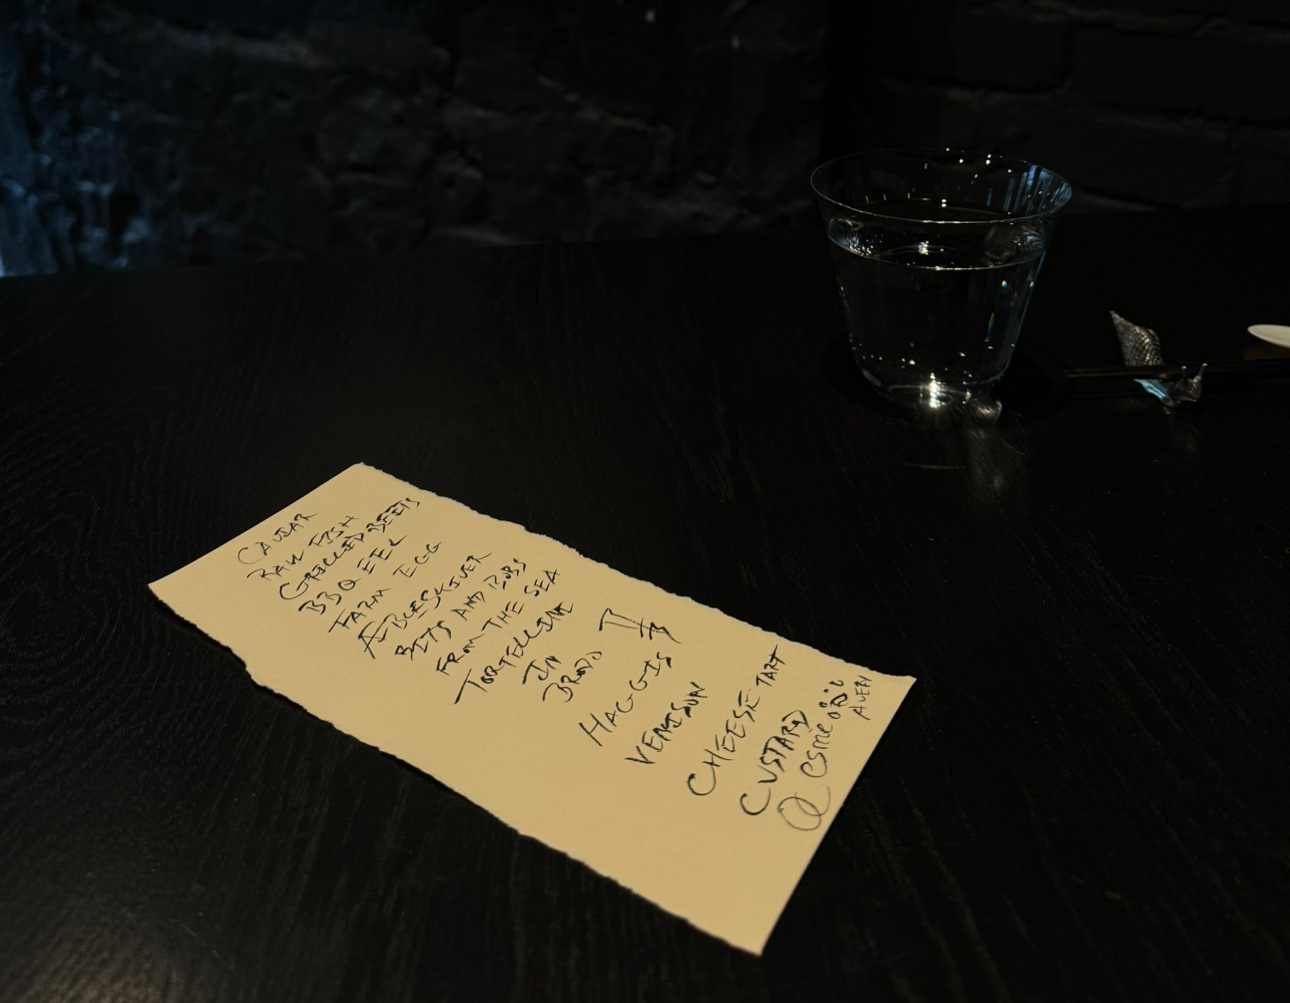 CAVIAR
RAW FISH
GRILLED BEETS
BBQ EEL
FARM EGG
ÆBLESKIVER
BITS AND BOBS
FROM THE SEA
TORTELLINI
IN
BRODO
HAGGIS
VENISON
CHEESE TART
CUSTARD